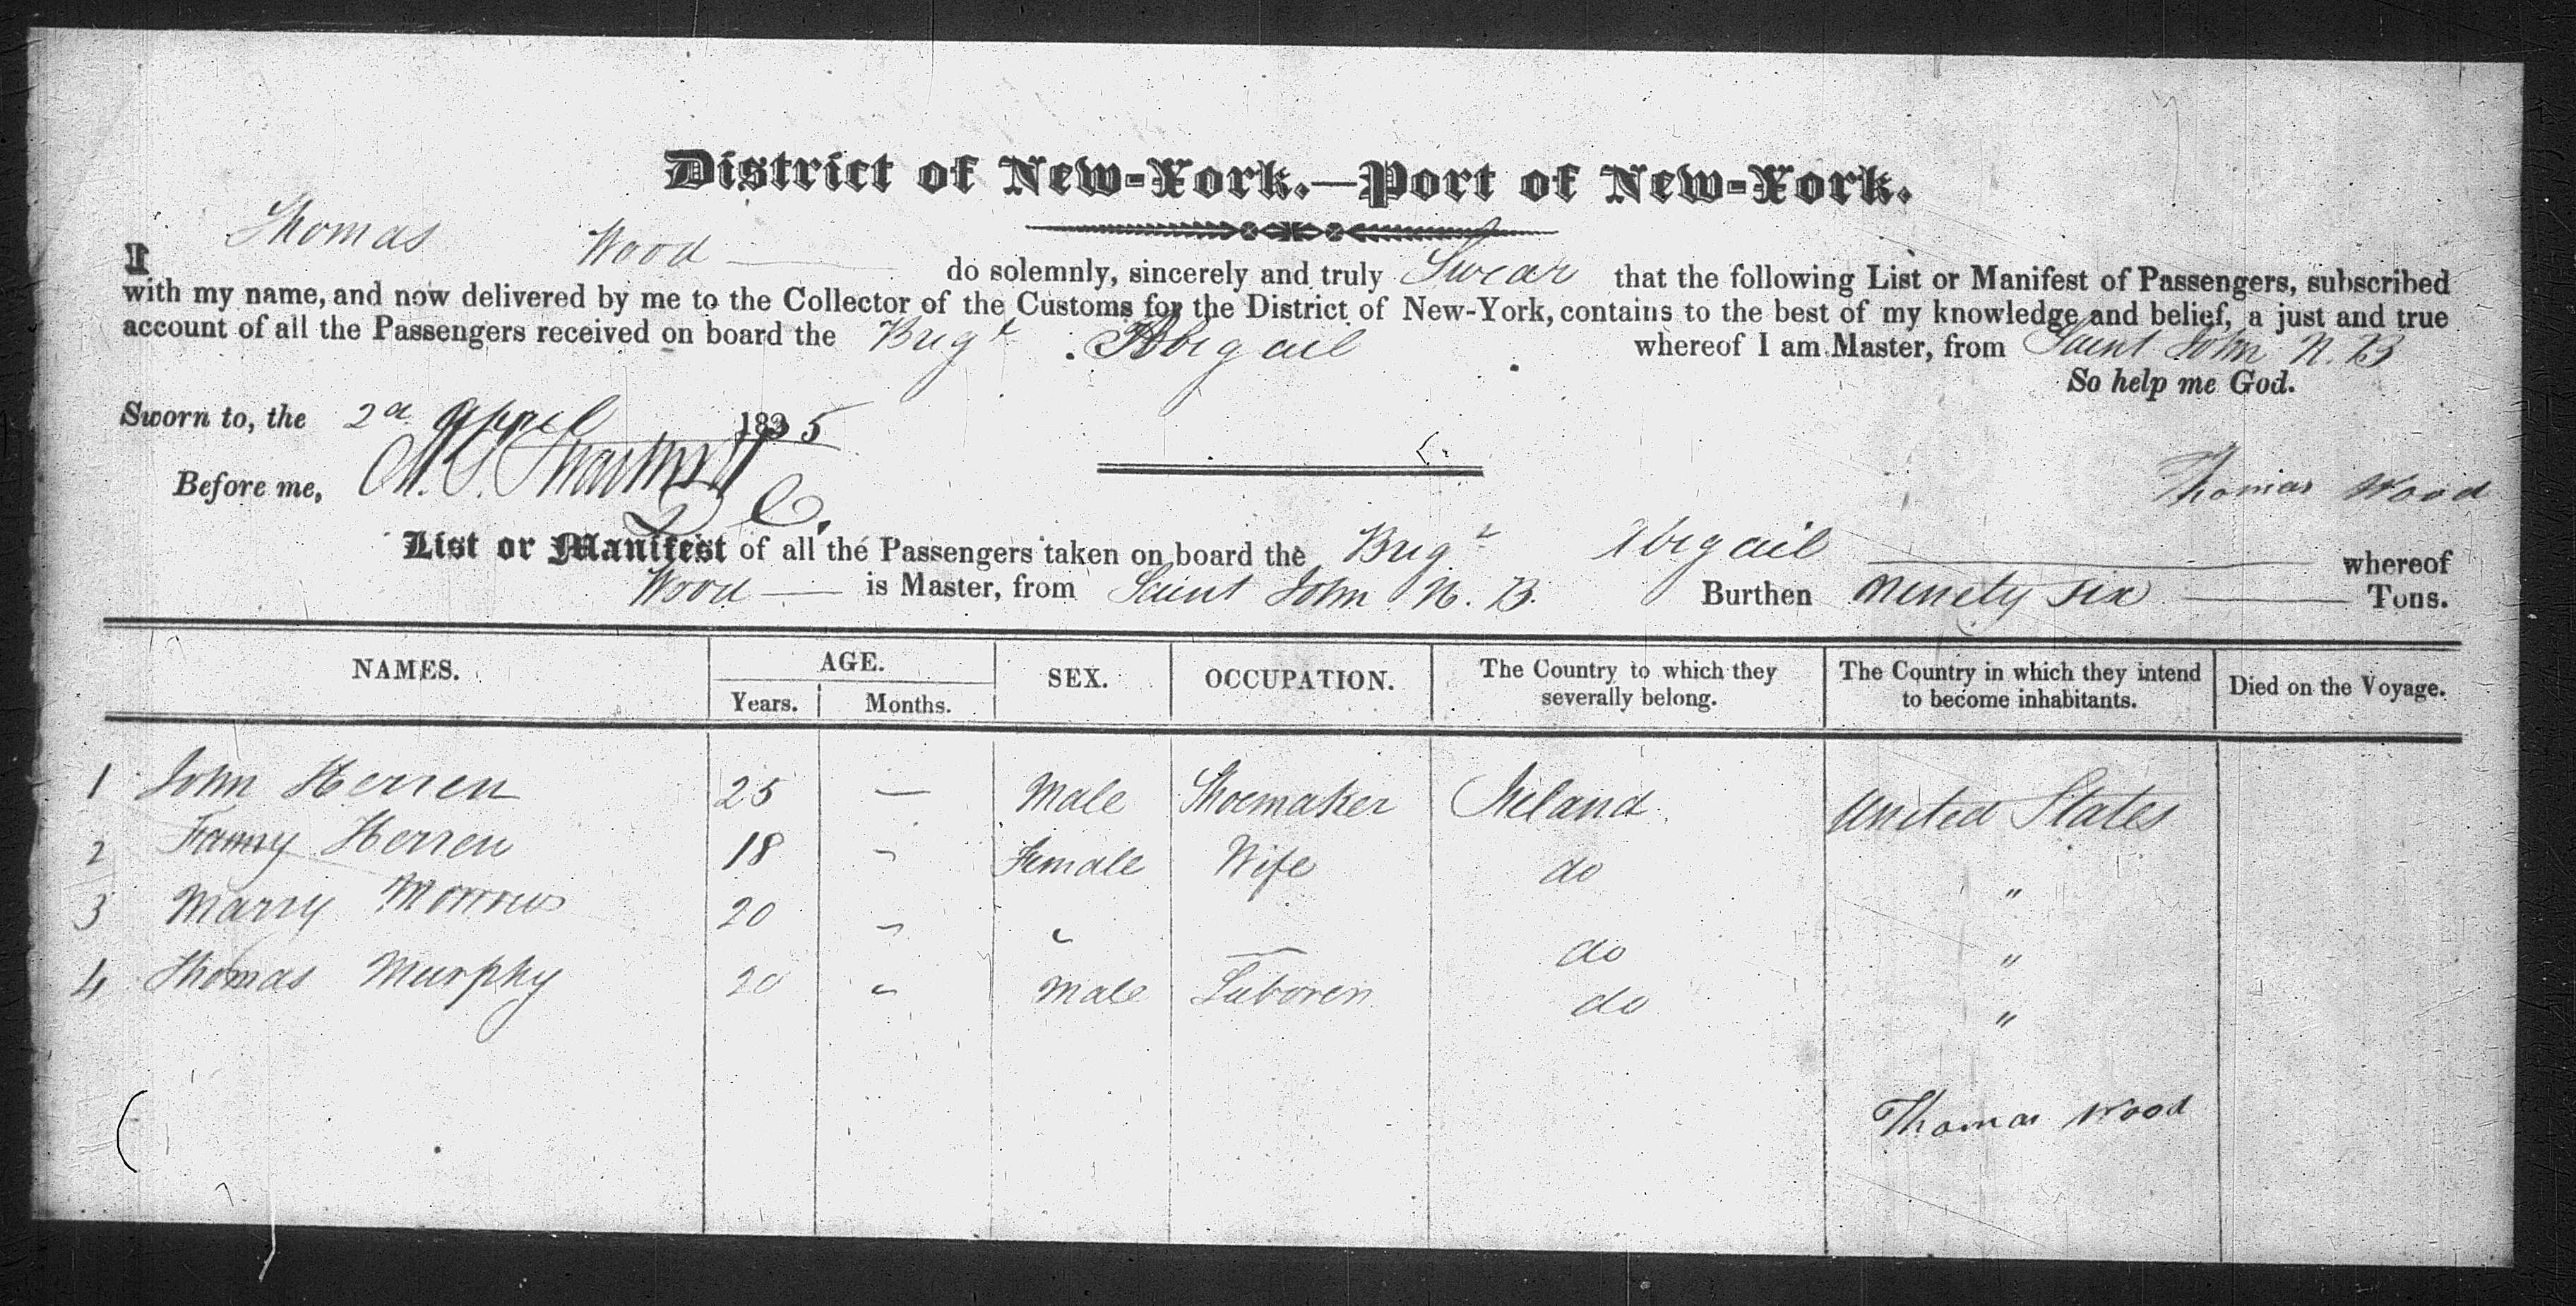 District of New-York.—Port of New-York.
I Thomas Wood — do solemnly, sincerely and truly Swear that the following List or Manifest of Passengers, subscribed
with my name, and now delivered by me to the Collector of the Customs for the District of New-York, contains to the best of my knowledge and belief, a just and true
account of all the Passengers received on board the Brigt Abigail whereof I am Master, from Saint John N. B
So help me God.
Sworn to, the 2d April 1835
Before me,
Thomas Wood
List or Manifest of all the Passengers taken on board the Brigt Abigail — whereof
Wood — is Master, from Saint John N. B. Burthen ninety six — Tons.
NAMES. AGE. SEX. OCCUPATION. The Country to which they severally belong. The Country in which they intend to become inhabitants. Died on the Voyage.
Years. Months.
1 John Herren 25 — Male Shoemaker Ireland United States
2 Fanny Herren 18 " Female Wife do "
3 Marry Morrows 20 " " — do "
4 Thomas Murphy 20 " Male Laborer do "
Thomas Wood